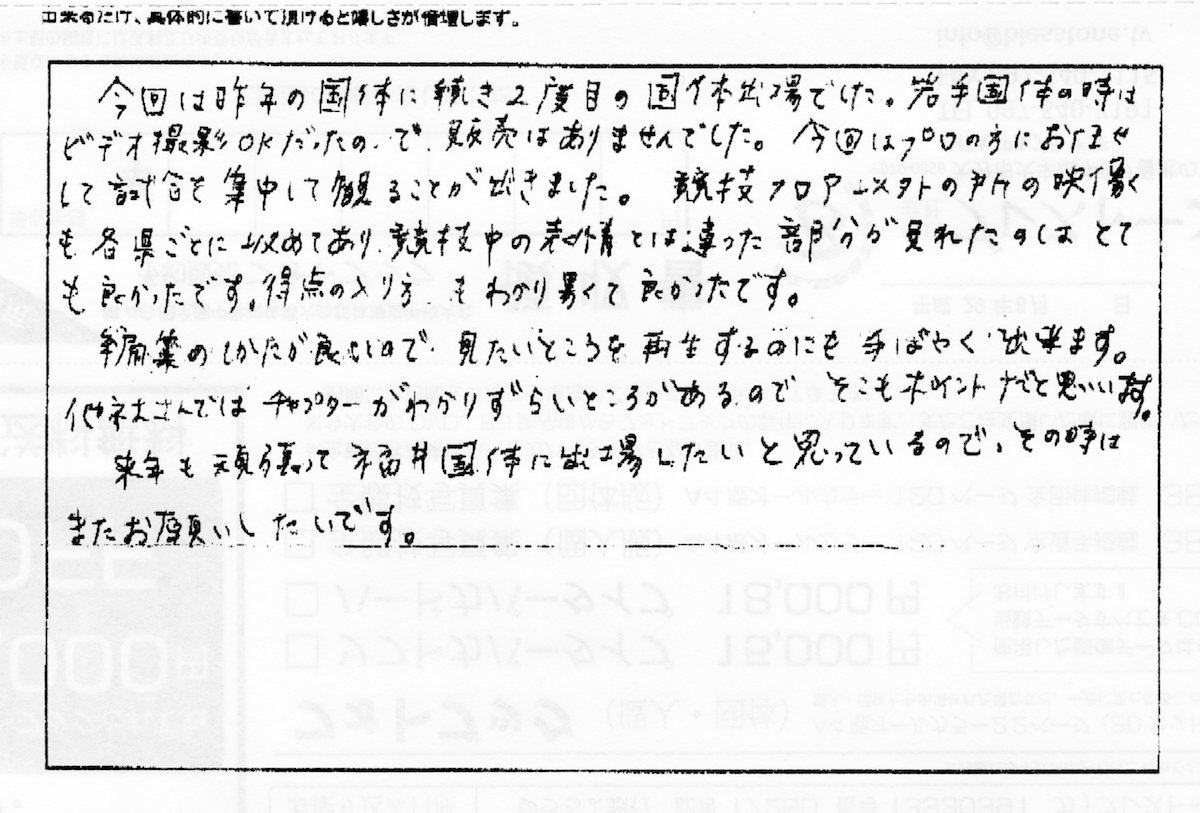 出来るだけ、具体的に書いて頂けると嬉しさが倍増します。
今回は昨年の国体に続き2度目の国体出場でした。岩手国体の時は
ビデオ撮影OKだったので、販売はありませんでした。今回はプロの方にお任せ
して試合を集中して観ることが出きました。競技フロア以外の所の映像
も各県ごとに収めてあり、競技中の表情とは違った部分が見れたのはとて
も良かったです。得点の入りも わかり易くて良かったです。
編集のしかたが良いので、見たいところを再生するのにも手ばやく出来ます。
他社さんでは チャプターがわかりずらいところがあるので そこもポイントだと思います。
来年も頑張って福井国体に出場したいと思っているので、その時は
またお願いしたいです。